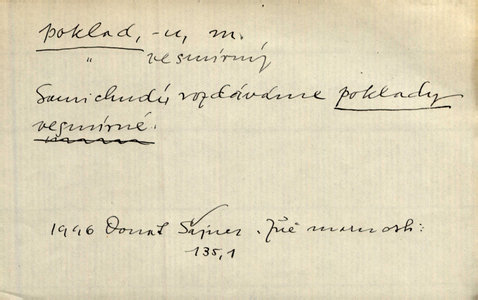 poklad, -u, m.
" vesmírný
Sami chudí rozdáváme poklady
vesmírné.
1996 Donát Šajner.
135,1